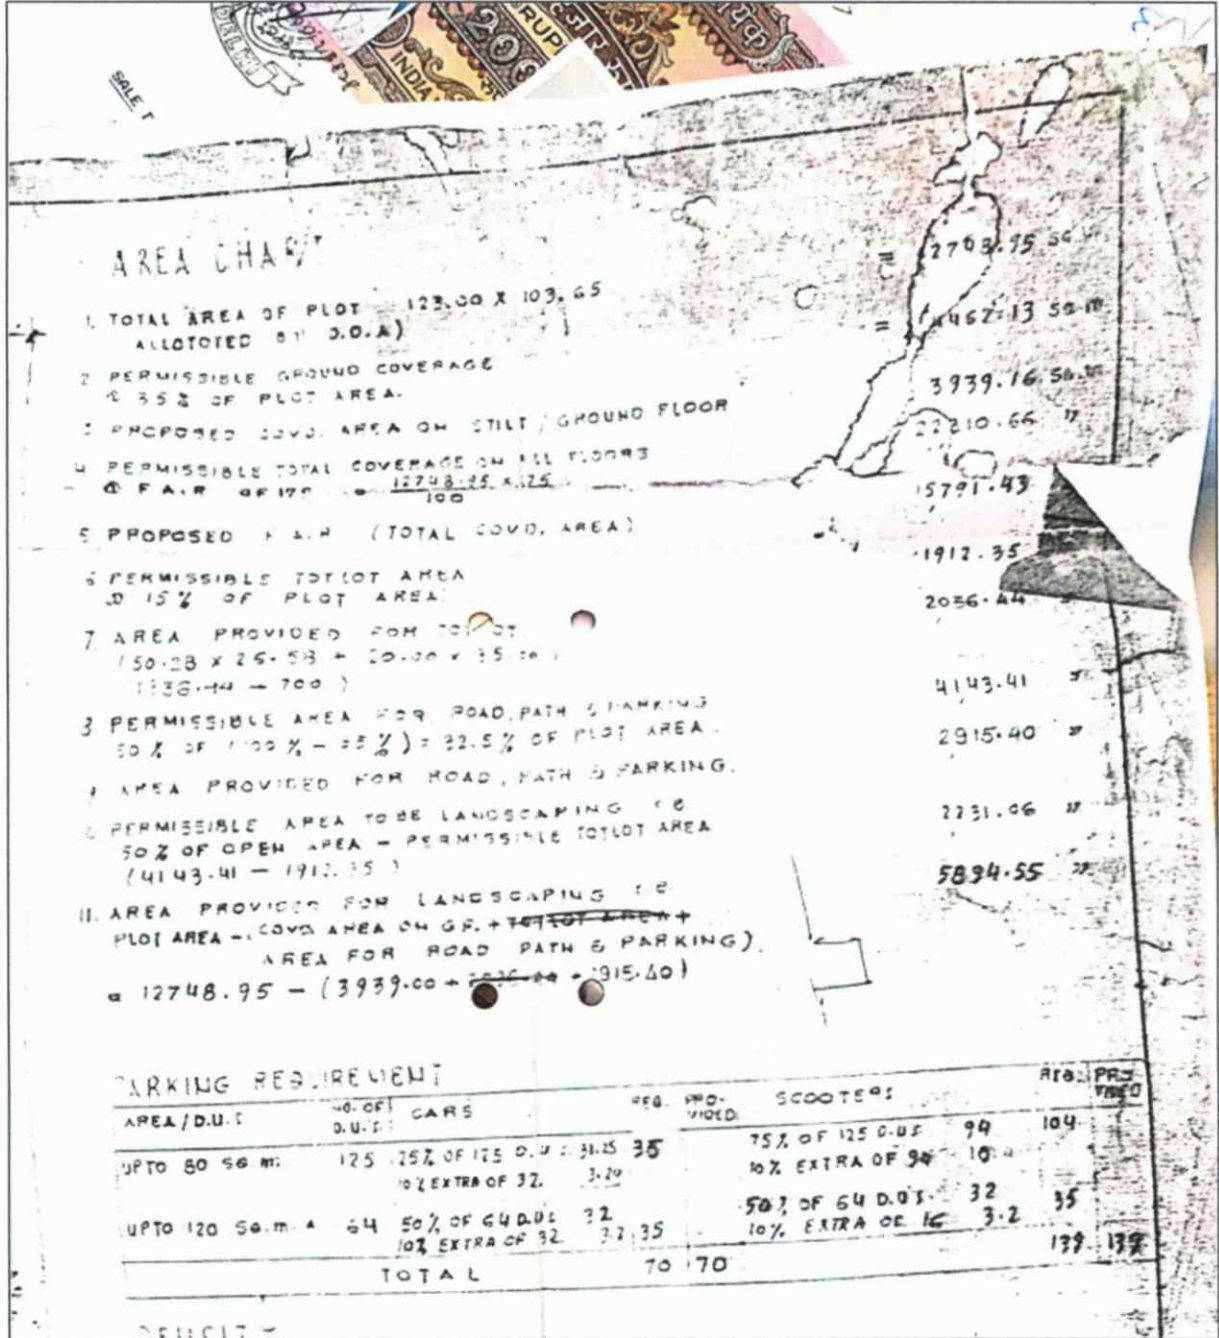 DELHI
INDIA
RUP
SALE
AREA CHART
1. TOTAL AREA OF PLOT 123.00 X 103.65 = 2748.95 SQ
ALLOTOTED BY D.D.A)
2 PERMISSIBLE GROUND COVERAGE = 4462.13 SQ.M
@ 35% OF PLOT AREA.
3 PROPOSED COVD. AREA ON STILT / GROUND FLOOR 3939.16 SQ.M
4 PERMISSIBLE TOTAL COVERAGE ON ALL FLOORS 22310.66 "
@ F A.R OF 175 = 12748.95 X 175
100
5 PROPOSED F.A.R (TOTAL COVD. AREA) 15791.43
6 PERMISSIBLE TOTLOT AREA 1912.35
@ 15% OF PLOT AREA
7 AREA PROVIDED FOR TOTLOT 2036.44
(50.28 X 26.58 + 20.00 X 35.00)
(1336.44 - 700)
8 PERMISSIBLE AREA FOR ROAD, PATH & PARKING 4143.41 "
50% OF (100% - 35%) = 32.5% OF PLOT AREA.
9 AREA PROVIDED FOR ROAD, PATH & PARKING. 2915.40 "
PERMISSIBLE AREA TO BE LANDSCAPING i.e 2231.06 "
50% OF OPEN AREA - PERMISSIBLE TOTLOT AREA
(4143.41 - 1912.35)
11. AREA PROVIDED FOR LANDSCAPING i.e 5894.55 "
PLOT AREA - (COVD AREA ON GF. + TOTLOT AREA +
AREA FOR ROAD PATH & PARKING).
= 12748.95 - (3939.00 + 915.40)
PARKING REQUIREMENT
AREA / D.U.S NO. OF D.U.S. CARS REQ. PRO-VIDED. SCOOTERS REQ. PRO-VIDED
UPTO 80 SQ.m. 125 25% OF 125 D.U.S 31.25 35 75% OF 125 D.U.S 94 104
10% EXTRA OF 32. 3.20 10% EXTRA OF 94 10
UPTO 120 SQ.m. 64 50% OF 64 D.U.S 32 50% OF 64 D.U'S. 32 35
10% EXTRA OF 32 3.2 35 10% EXTRA OF 16 3.2
TOTAL 70 70 139 139
DEFICIT -